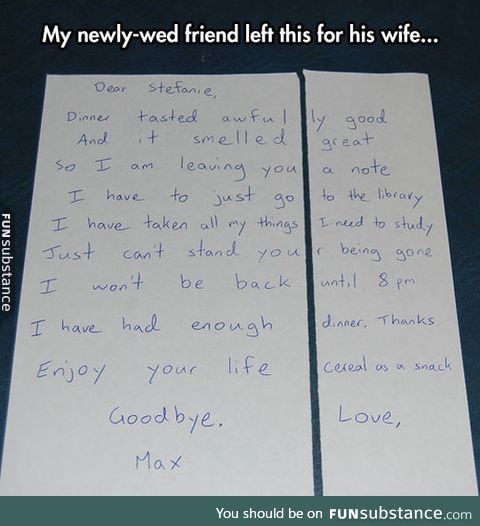 My newly-wed friend left this for his wife...
Dear Stefanie,
Dinner tasted awful ly good
And it smelled great
So I am leaving you a note
I have to just go to the library
I have taken all my things I need to study
Just can't stand you r being gone
I won't be back until 8 pm
I have had enough dinner. Thanks
Enjoy your life Cereal as a snack
Goodbye. Love,
Max
FUNsubstance
You should be on FUNsubstance.com